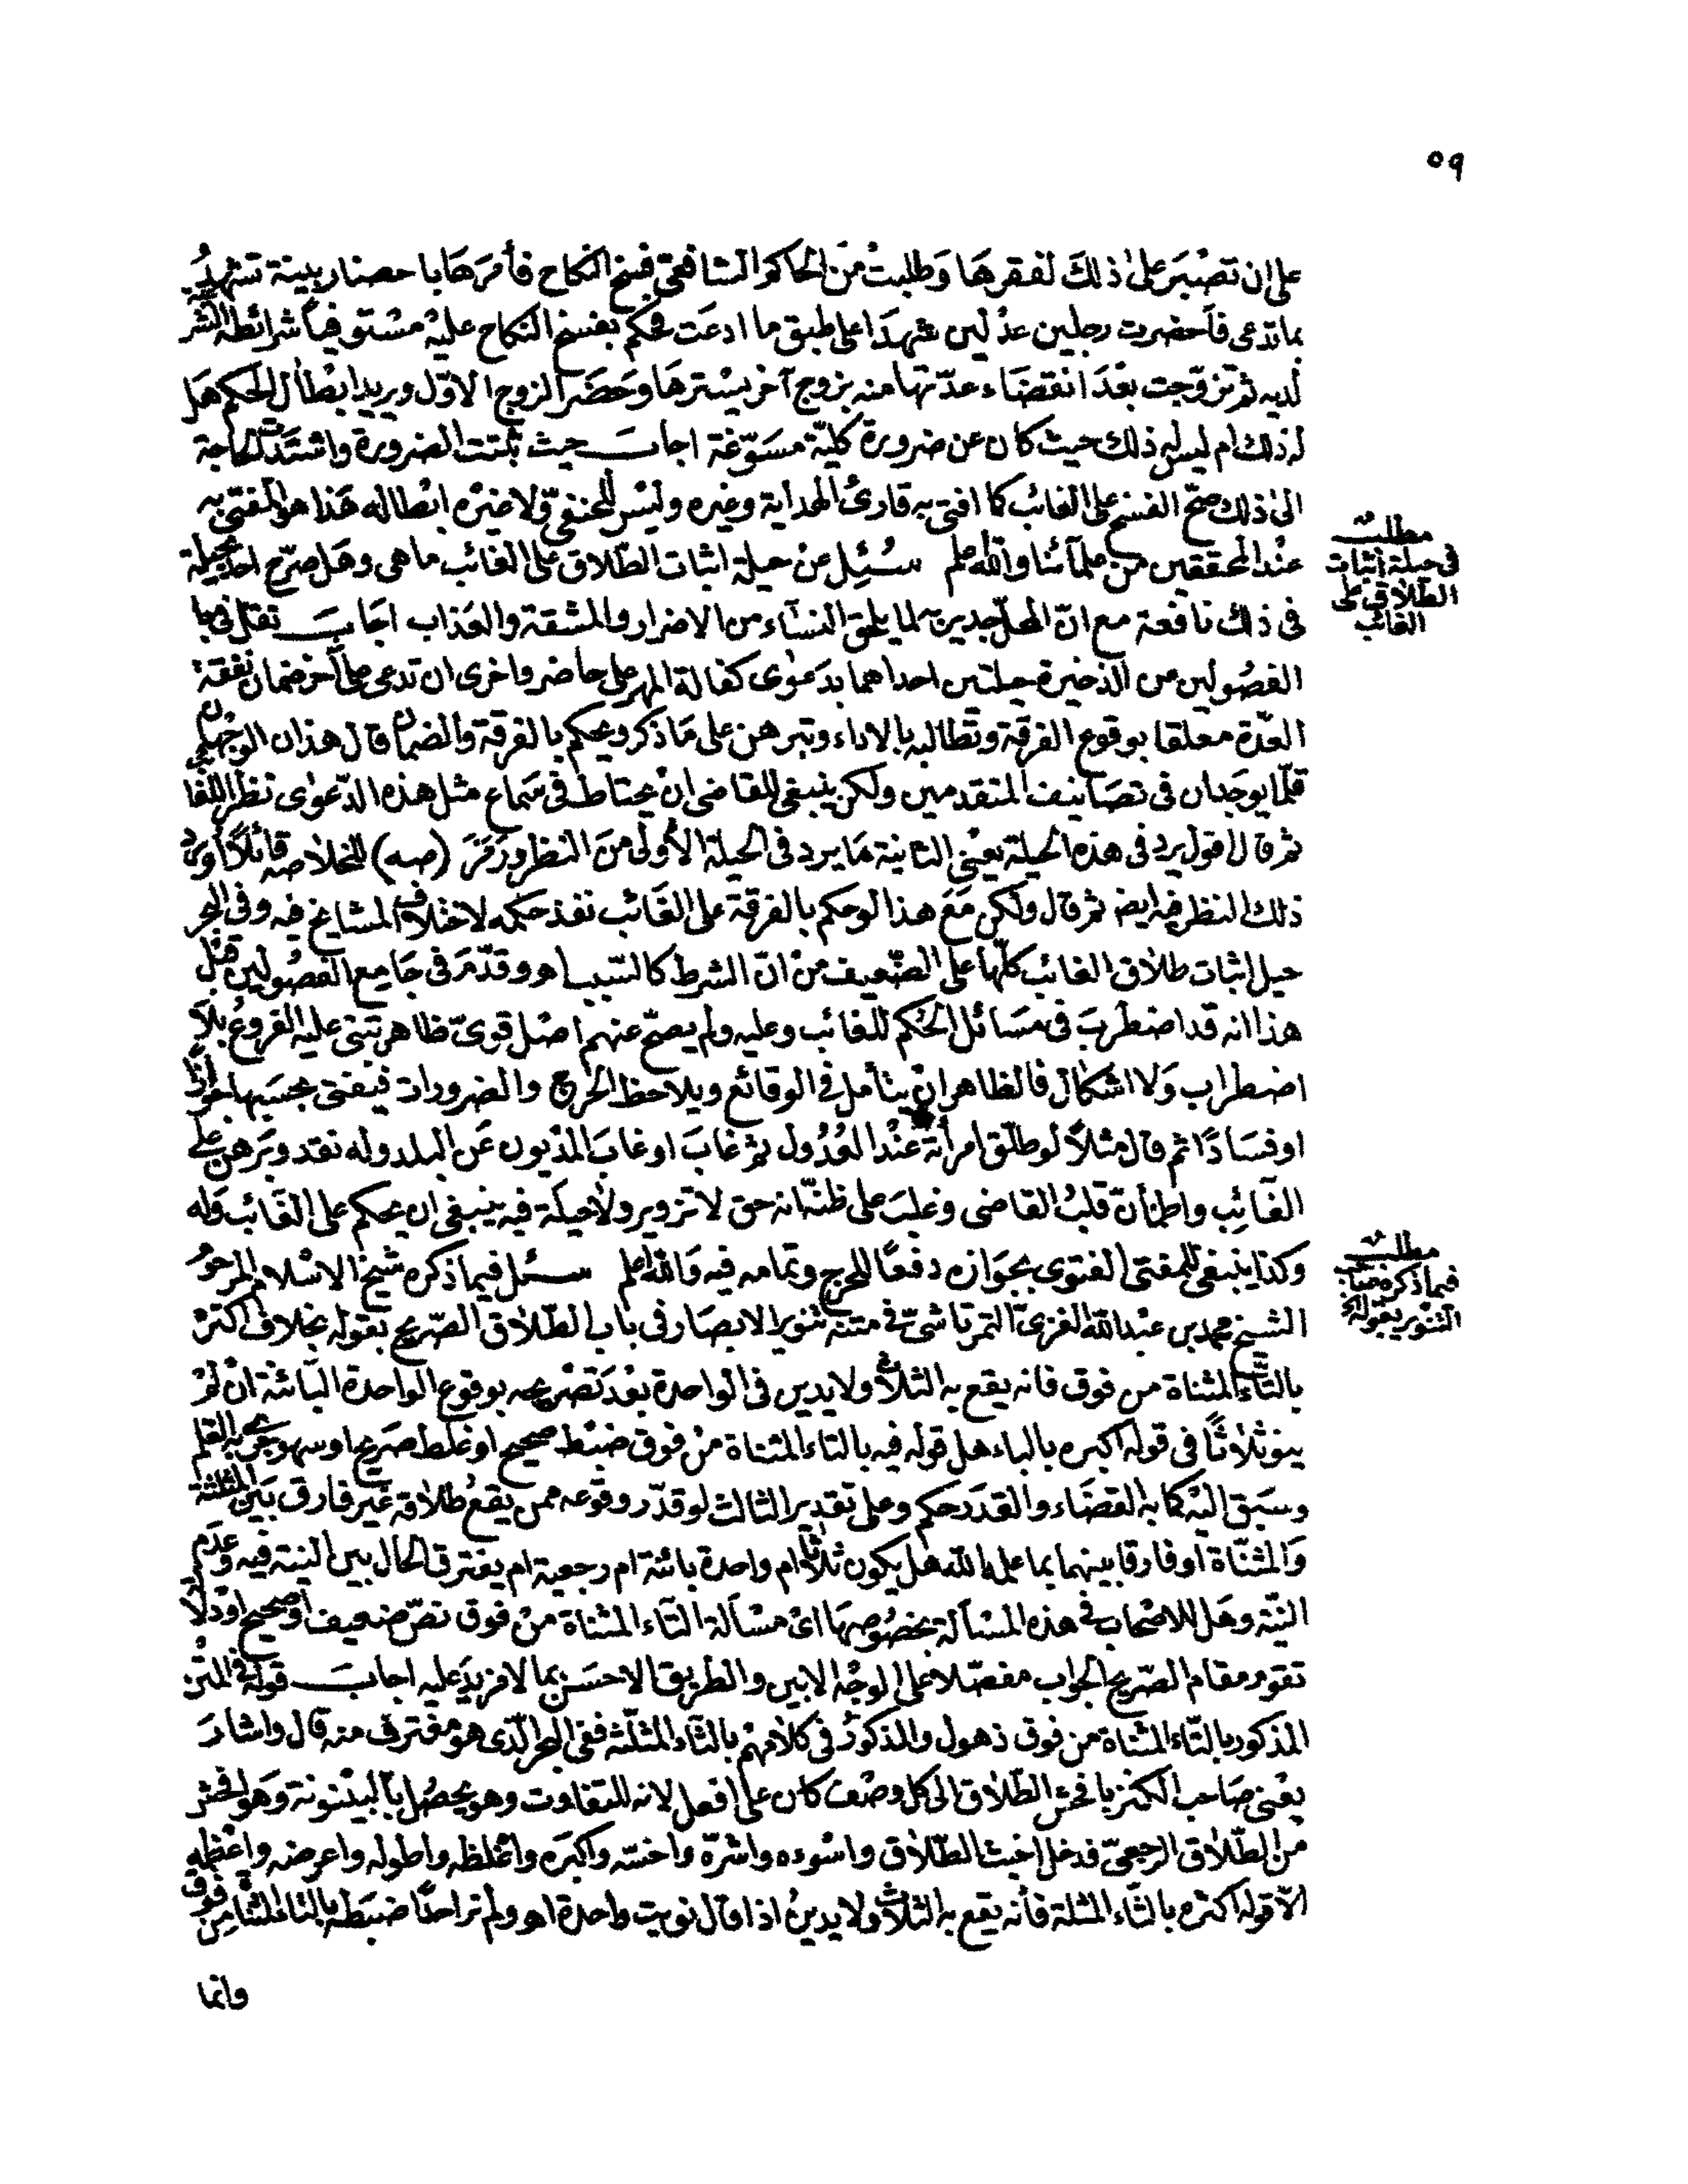 ٥٩
على ان تصبر على ذلك لفقرها وطلبت من الحاكم الشافعى فسخ النكاح فأمرها باحضار بينة تشهد
بما تدعى فاحضرت رجلين عدلين شهدا على طبق ما ادعت فحكم بفسخ النكاح عليه مستوفيا شرائطه الشرعية
لديه ثم تزوجت بعد انقضاء عدّتها منه بزوج آخر يسترها وحضر الزوج الاوّل ويريد ابطال الحكم هل
له ذلك ام ليس له ذلك حيث كان عن ضرورة كليّة مسوّغة اجاب حيث ثبتت الضرورة واشتدت الحاجة
الى ذلك صحّ الفسخ على الغائب كما افتى به قارئ الهداية وغيره وليس للحنفىّ ولا غيره ابطاله هذا هو المفتى به
عند المحققين من علمآئنا والله اعلم سئل عن حيلة اثبات الطلاق على الغائب ما هى وهل صرّح احد بحيلة
فى ذلك نافعة مع انّ المحلّ جدير به لما يلحق النسآء من الاضرار والمشقة والعذاب اجاب نقل فى جامع
الفصولين عن الذخيرة حيلتين احداهما بدعوى كفالة المهر على حاضر واخرى ان تدعى على آخر ضمان نفقة
العدّة معلقا بوقوع الفرقة وتطالبه بالاداء وتبرهن على ما ذكر ويحكم بالفرقة والضمان قال هذان الوجهان
قلّما يوجدان فى تصانيف المتقدمين ولكن ينبغى للقاضى ان يحتاط فى سماع مثل هذه الدّعوى نظرا للغائب
ثم قال اقول يرد فى هذه الحيلة يعنى الثانية ما يرد فى الحيلة الأولى من النظر ورمز (صه) للخلاصه قائلا أورد
ذلك النظر فيه ايضا ثم قال ولكن مع هذا لو حكم بالفرقة على الغائب نفذ حكمه لاختلاف المشايخ فيه وفى البحر
حيل اثبات طلاق الغائب كلّها على الضّعيف من انّ الشرط كالسّبب اهـ وقدّم فى جامع الفصولين قبل
هذا انه قد اضطرب فى مسائل الحكم للغائب وعليه ولم يصحّ عنهم اصل قوىّ ظاهر تبتنى عليه الفروع بلا
اضطراب ولا اشكال فالظاهر ان يتأمل فى الوقائع ويلاحظ الحرج والضرورات فيفتى بحسبها جوازا
او فسادًا ثم قال مثلاً لو طلّق امرأته عند العدول ثم غاب او غاب المديون عن البلد وله نقد وبرهن على
الغائب واطمأنّ قلب القاضى وغلب على ظنه انه حق لا تزوير ولا حيلة فيه ينبغى ان يحكم على الغائب وله
وكذا ينبغى للمفتى الفتوى بجوازه دفعًا للحرج وتمامه فيه والله اعلم سئل فيما ذكره شيخ الاسلام المرحوم
الشيخ محمد بن عبد الله الغزىّ التمرتاشىّ فى متنه تنوير الابصار فى باب الطلاق الصّريح بقوله بخلاف اكثره
بالتّاء المثناة من فوق فانه يقع به الثلاث ولا يدين فى الواحدة بعد تصريحه بوقوع الواحدة البائنة ان لم
ينو ثلاثًا فى قوله اكبره بالباء هل قوله فيه بالتاء المثناة من فوق ضبط صحيح او غلط صريح او سهو جرى به القلم
وسبق اليه كما به القضاء والقدر حكم وعلى تقدير الثالث لو قدّر وقوعه ممن يقع طلاقه غير فارق بين المثلثة
والمثنّاة او فارقا بينهما بما علمه الله هل يكون ثلاثا ام واحدة بائنة ام رجعية ام يفترق الحال بين النية فيه وعدم
النيّة وهل للاصحاب فى هذه المسألة بخصوصها اى مسألة التآء المثناة من فوق نصّ ضعيف او صحيح او دلالة
تقوم مقام الصّريح الجواب مفصّلا على الوجه الابين والطريق الاحسن بما لا مزيد عليه اجاب قوله فى المتن
المذكور بالتّاء المثناة من فوق ذهول والمذكور فى كلامهم بالثّاء المثلّثة ففى البحر الّذى هو مغترف منه قال واشار
يعنى صاحب الكنز بافحش الطّلاق الى كل وصف كان على افعل لانه للتفاوت وهو يحصل بالبينونة وهو افحش
من الطّلاق الرجعىّ فدخل اخبث الطّلاق واسوءه واشرّه واخسّه واكبره واغلظه واطوله واعرضه واعظمه
الّا قوله اكثره بالثّاء المثلثة فأنه يقع به الثلاث ولا يدين اذا قال نويت واحدة اهـ ولم تر احدًا ضبطه بالتّاء المثناة من فوق
وانما
مطلب
فى حيلة اثبات
الطلاق على
الغائب
مطلب
فيما ذكره صاحب
التنوير بقوله الخ